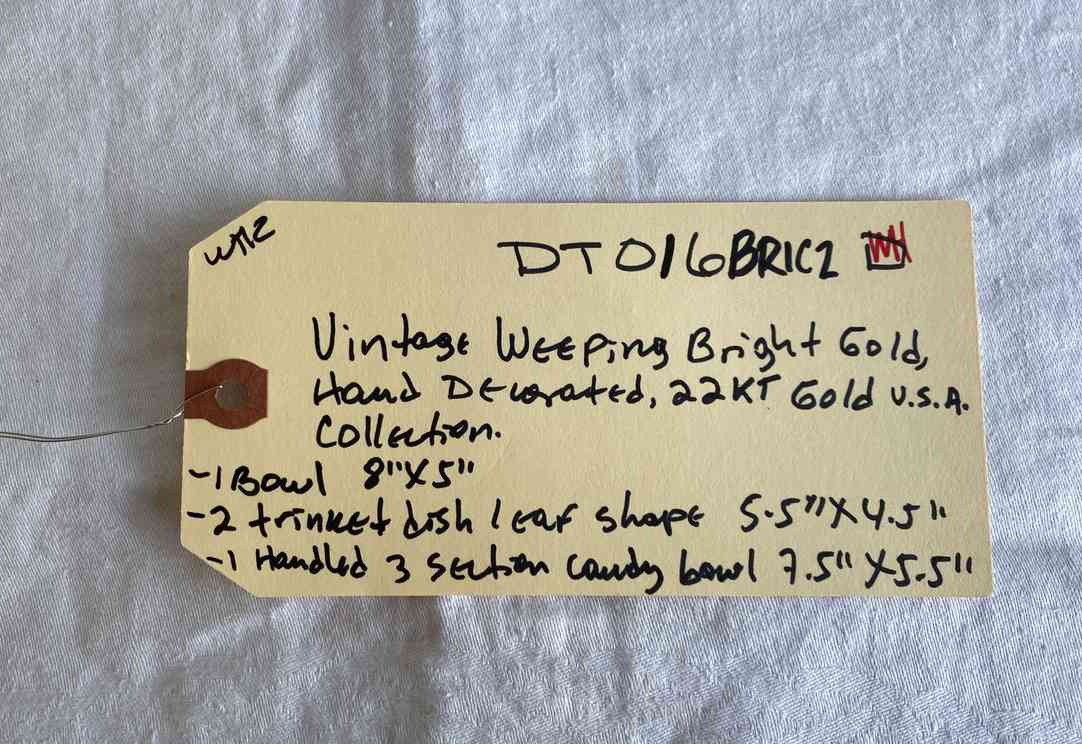 DT016BRIC2
Vintage Weeping Bright Gold,
Hand Decorated, 22KT Gold U.S.A.
Collection.
-1 Bowl 8"X5"
-2 trinket dish leaf shape 5.5"X4.5"
-1 Handled 3 section candy bowl 7.5"X5.5"